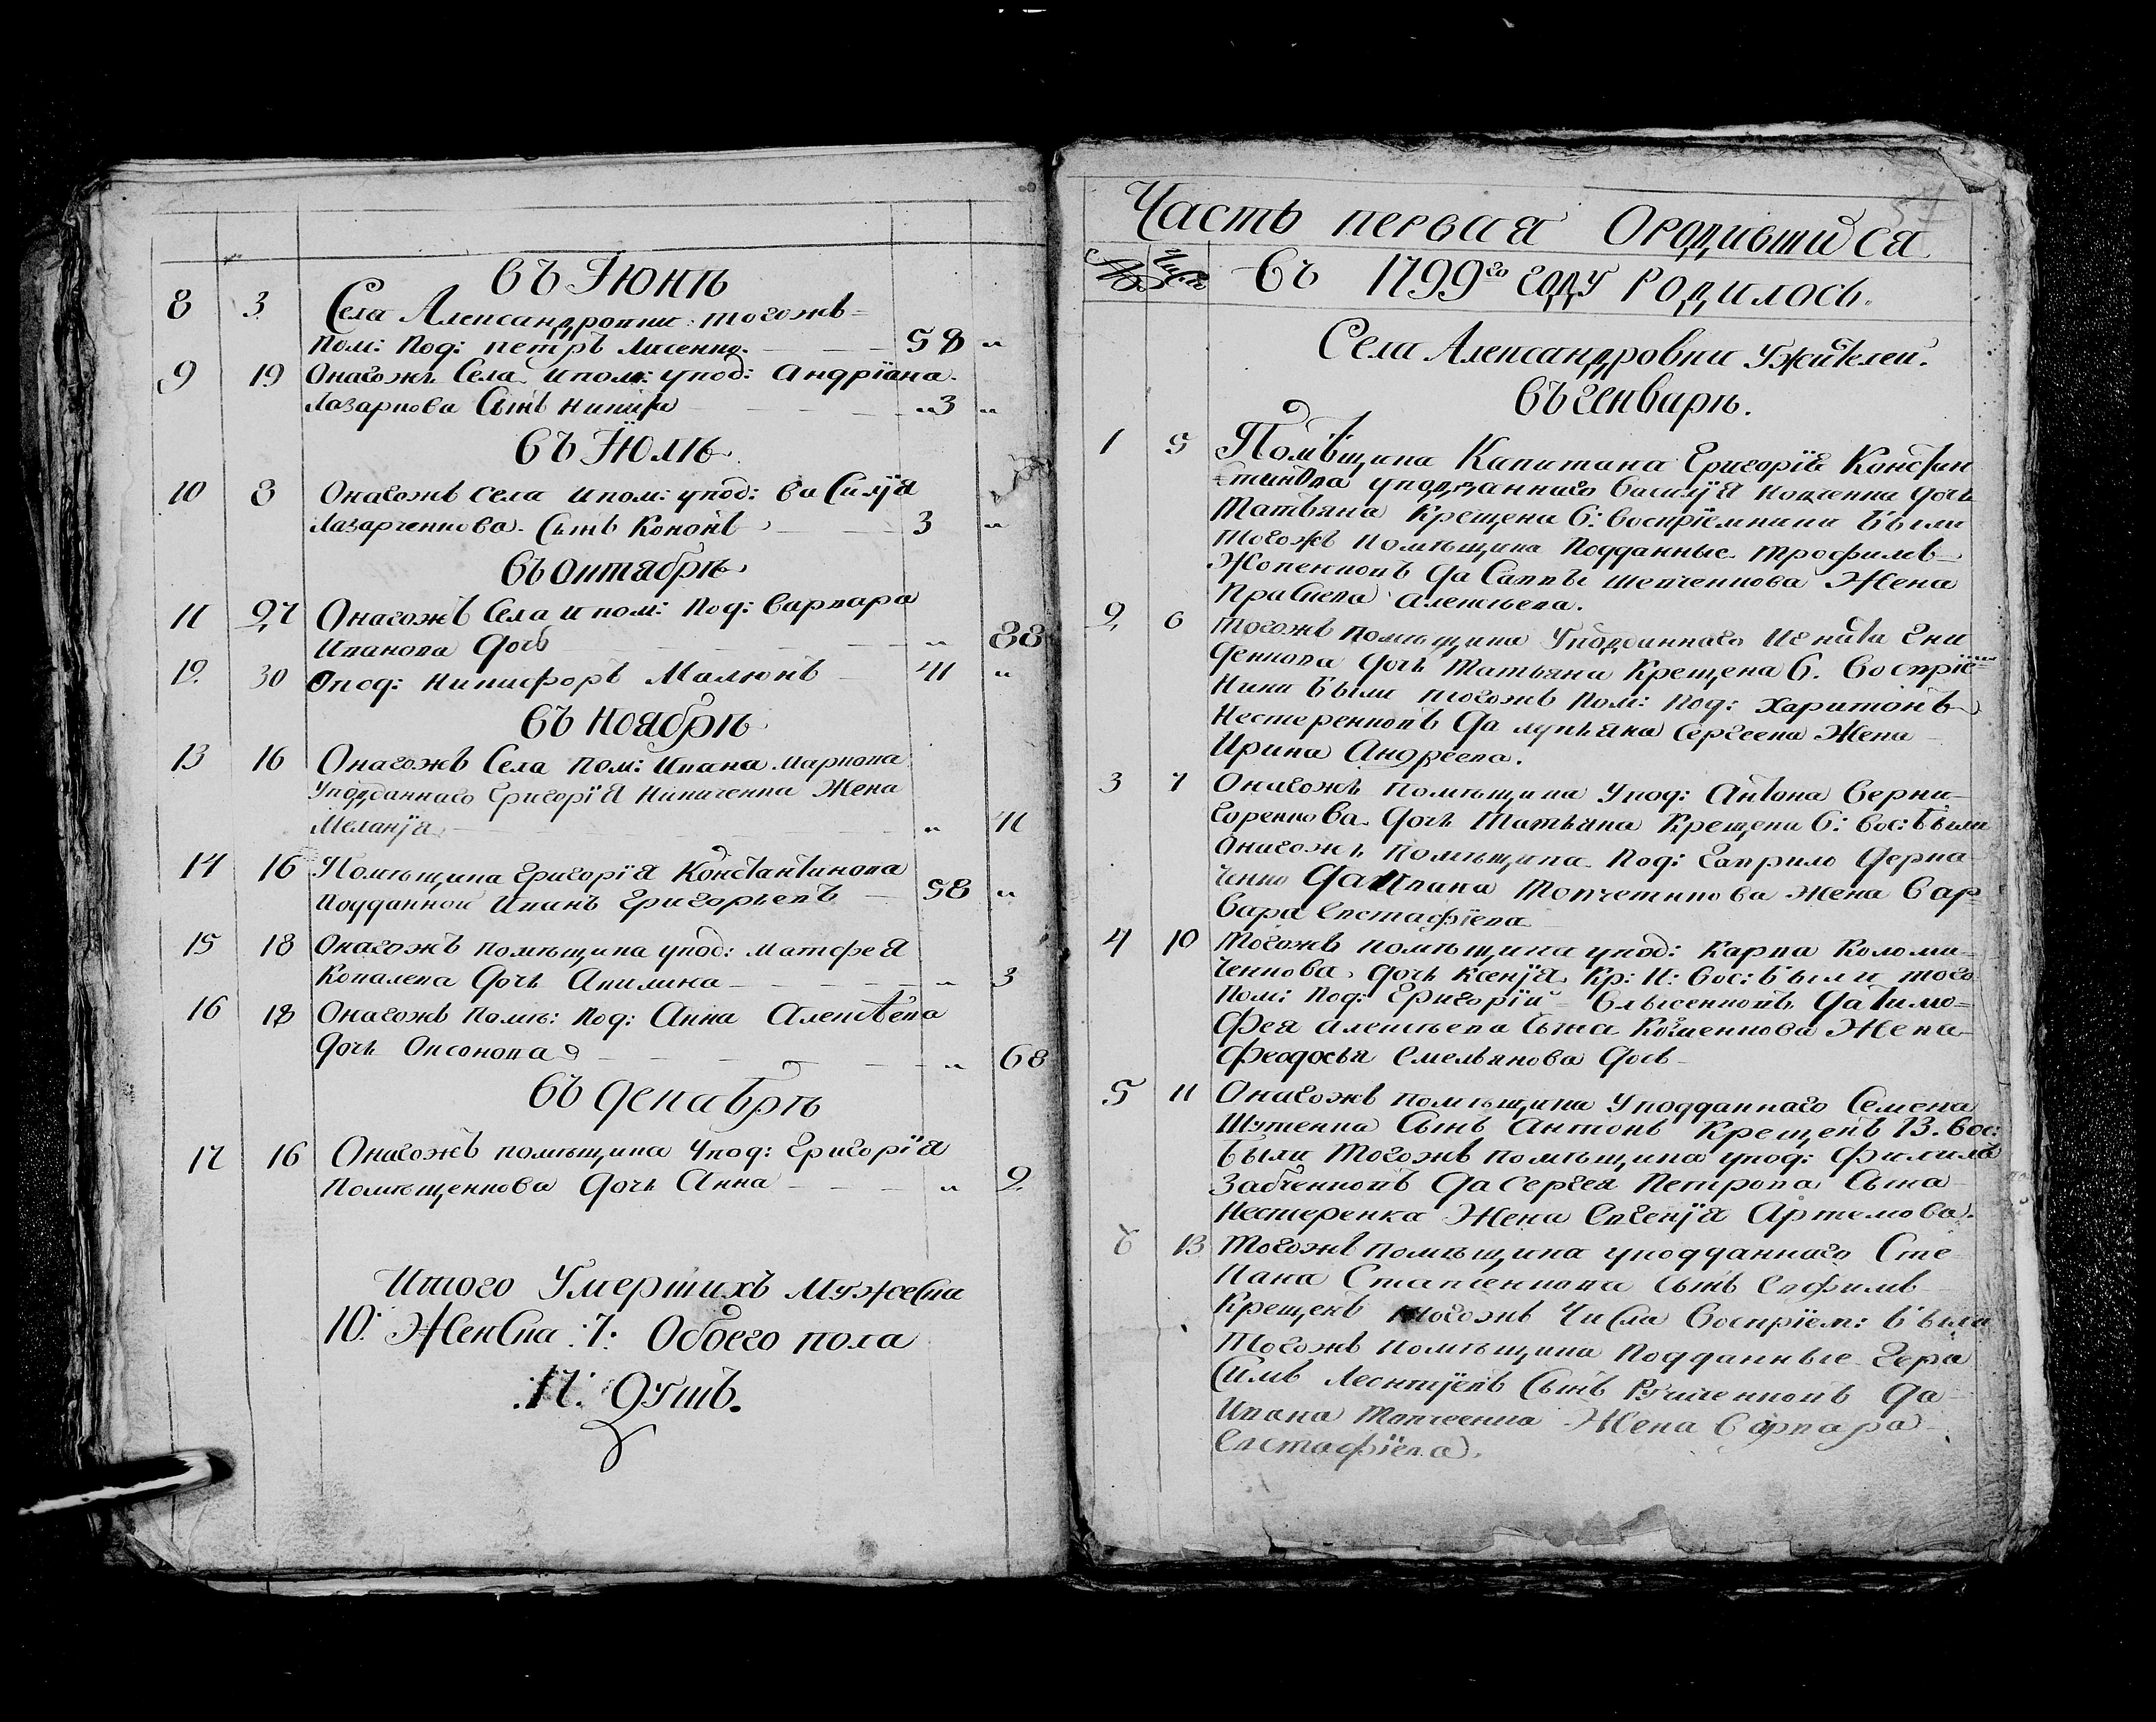 въ Июнѣ
8 3 Села Александровки тогожъ
Пом: Под: петръ Лисенко. 58 "
9 19 Онагожъ Села и пом: упод: андрїана
Лазаркова Сынъ никита "3 "
въ Июлѣ
10 8 Онагожъ села и пом: упод: василїя
Лазарченкова Сынъ Кононъ 3 "
въ октябрѣ
11 27 Онагожъ Села и пом: Под: варвара
Иванова дочь " 88
12 30 под: никифоръ Малюкъ 41 "
въ ноябрѣ
13 16 Онагожъ Села пом: ивана маркова
Уподданнаго григорїя никиченка Жена
Меланїя " 41
14 16 Помѣщика григорїя Константинова
подданной иванъ григорьевъ 58 "
15 18 Онагожъ помѣщика упод: матфея
Ковалева дочь акилина " 3
16 18 Онагожъ помѣ: под: Анна Алексѣева
дочь Оксонова " 68
въ декабрѣ
17 16 Онагожъ помѣщика Упод: григорїя
Помѣщенкова дочь Анна " 2
Итого Умершихъ мужеска
10: Женска :7: Обоего пола
:17: душъ.
57
Часть первая Ородившися
№ Число въ 1799го году родилось.
Села Александровки Ужителей.
въ генварѣ.
1 5 Помѣщика Капитана григорїя Констан
тинова уподданнаго василїя дочь
Татьяна Крещена 6: воспрїемники были
тогожъ помѣщика подданные трофимъ
да Саввы шевченкова Жена
Алексѣева.
2 6 Тогожъ помѣщика Уподданнаго игната гни
денкова дочь татьяна Крещена 6. воспрїем
ники были тогожъ пом: под: харитонъ
нестеренковъ да лукьяна Сергеева Жена
Ирина Андреева.
3 7 Онагожъ помѣщика Упод: Антона верни
горенкова дочь татьяна Крещена 6: вос: были
онагожъ помѣщика под: гаврило дерка
ченко да ивана жена вар
вара Евстафїева
4 10 Тогожъ помѣщика упод: карпа Колома
ченкова дочь ксенїя Кр: 11: вос: были того
пом: под: григорїй да тимо
фея алексѣева сына Жена
феодосья Емельянова дочь
5 11 Онагожъ помѣщика Уподданнаго Семена
Шутенка Сынъ антонъ Крещенъ 13. вос:
были тогожъ помѣщика упод:
да сергея Петрова Сына
нестеренка Жена Евгенїя Артемова.
6 13 Тогожъ помѣщика уподданнаго Сте
пана сынъ Евфимъ
Крещенъ тогожъ Числа воспрїем: были
тогожъ помѣщика подданные гера
симъ леонтїевъ Сынъ да
ивана Жена варвара
Евстафїева.